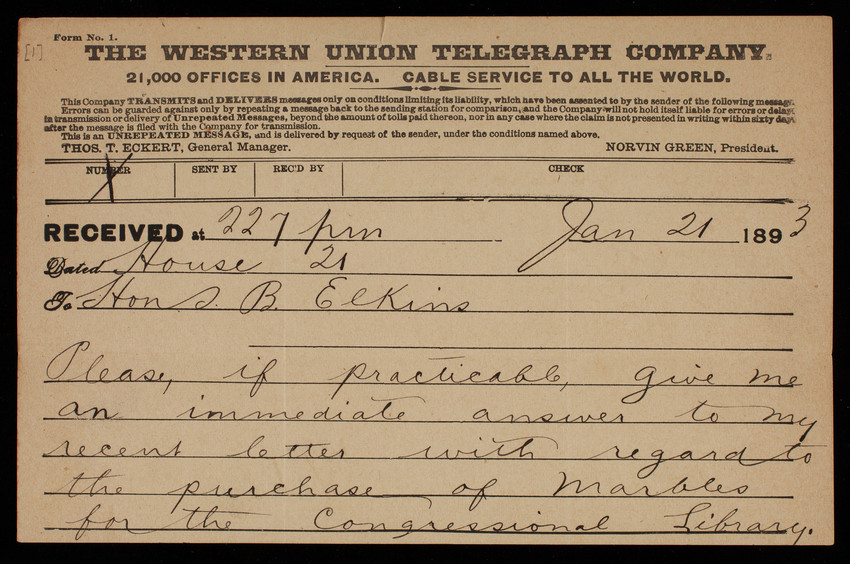 Form No. 1.
[1]
THE WESTERN UNION TELEGRAPH COMPANY.
21,000 OFFICES IN AMERICA. CABLE SERVICE TO ALL THE WORLD.
This Company TRANSMITS and DELIVERS messages only on conditions limiting its liability, which have been assented to by the sender of the following message.
Errors can be guarded against only by repeating a message back to the sending station for comparison, and the Company will not hold itself liable for errors or delays
in transmission or delivery of Unrepeated Messages, beyond the amount of tolls paid thereon, nor in any case where the claim is not presented in writing within sixty days
after the message is filed with the Company for transmission.
This is an UNREPEATED MESSAGE, and is delivered by request of the sender, under the conditions named above.
THOS. T. ECKERT, General Manager. NORVIN GREEN, President.
NUMBER SENT BY REC'D BY CHECK
RECEIVED at 227 pm Jan 21 1893
Dated House 21
To Hon S. B. Elkins
Please, if practicable, give me
an immediate answer to my
recent letter with regard to
the purchase of Marbles
for the Congressional Library.